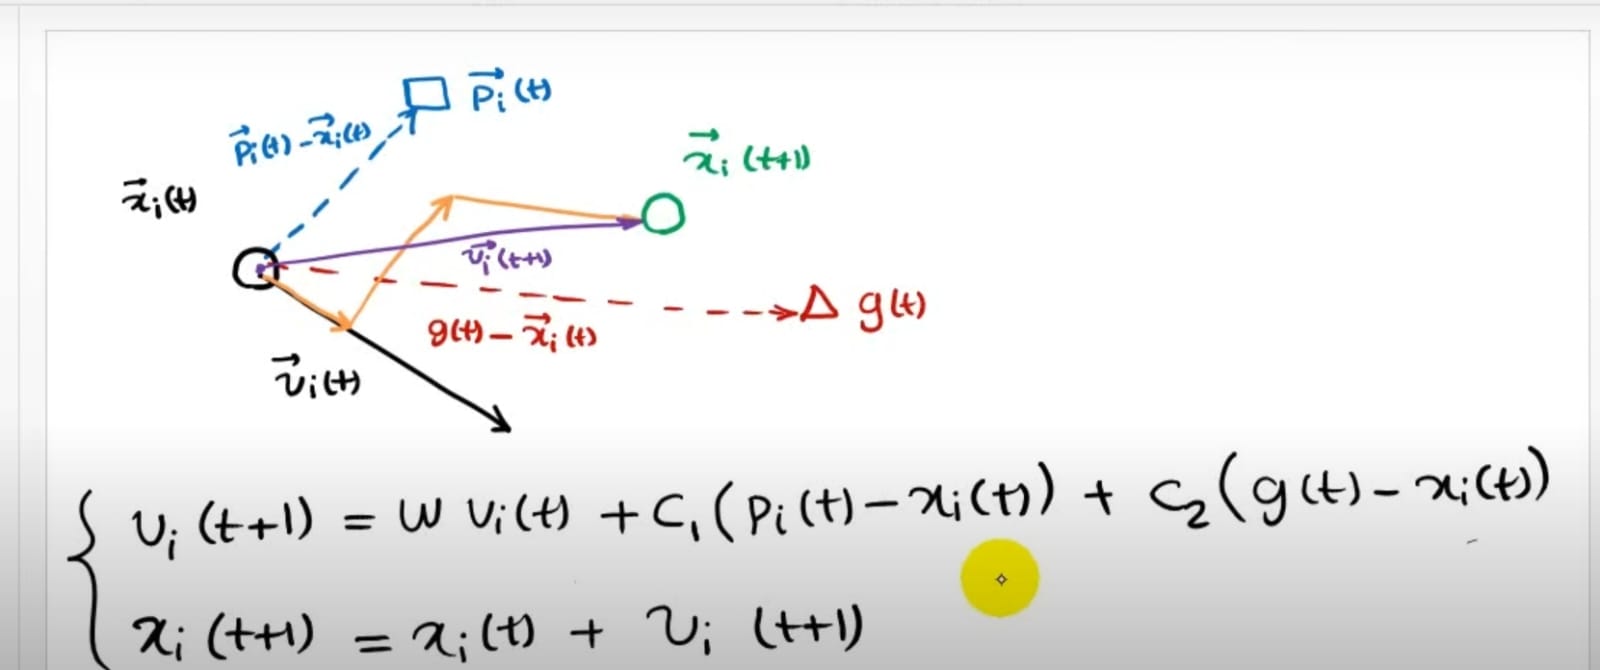 p⃗ᵢ(t)
p⃗ᵢ(t) - x⃗ᵢ(t)
x⃗ᵢ(t+1)
x⃗ᵢ(t)
v⃗ᵢ(t+1)
g(t)
g(t) - x⃗ᵢ(t)
v⃗ᵢ(t)
vᵢ(t+1) = w vᵢ(t) + C₁(pᵢ(t) - xᵢ(t)) + C₂(g(t) - xᵢ(t))
xᵢ(t+1) = xᵢ(t) + vᵢ(t+1)